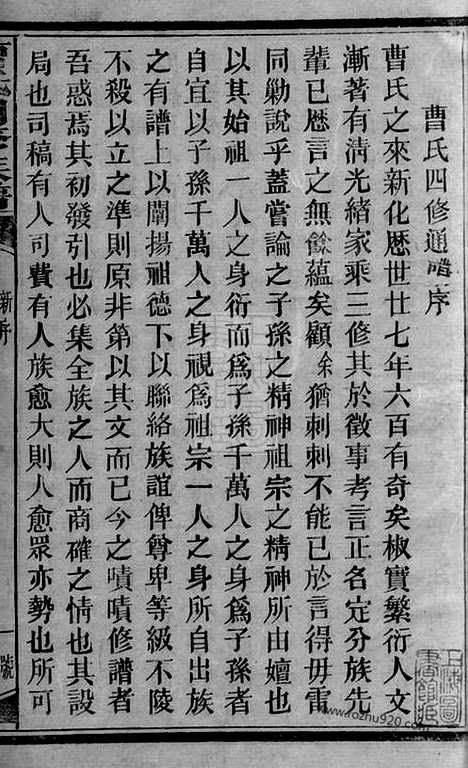 曹氏四修通譜序
曹氏之來新化歴世廿七年六百有奇矣椒實繁衍人文
漸著有淸光緒家乘三修其於徵事考言正名定分族先
輩已歴言之無餘蘊矣顧余猶刺刺不能已於言得毋雷
同勦說乎蓋嘗論之子孫之精神祖宗之精神所由嬗也
以其始祖一人之身衍而爲子孫千萬人之身爲子孫者
自宜以子孫千萬人之身視爲祖宗一人之身所自出族
之有譜上以闡揚祖德下以聯絡族誼俾尊卑等級不陵
不殺以立之準則原非第以其文而已今之嘖嘖修譜者
吾惑焉其初發引也必集全族之人而商確之情也其設
局也司稿有人司費有人族愈大則人愈眾亦勢也所可
新序
一
上海圖書館藏
www.rozhu920.com